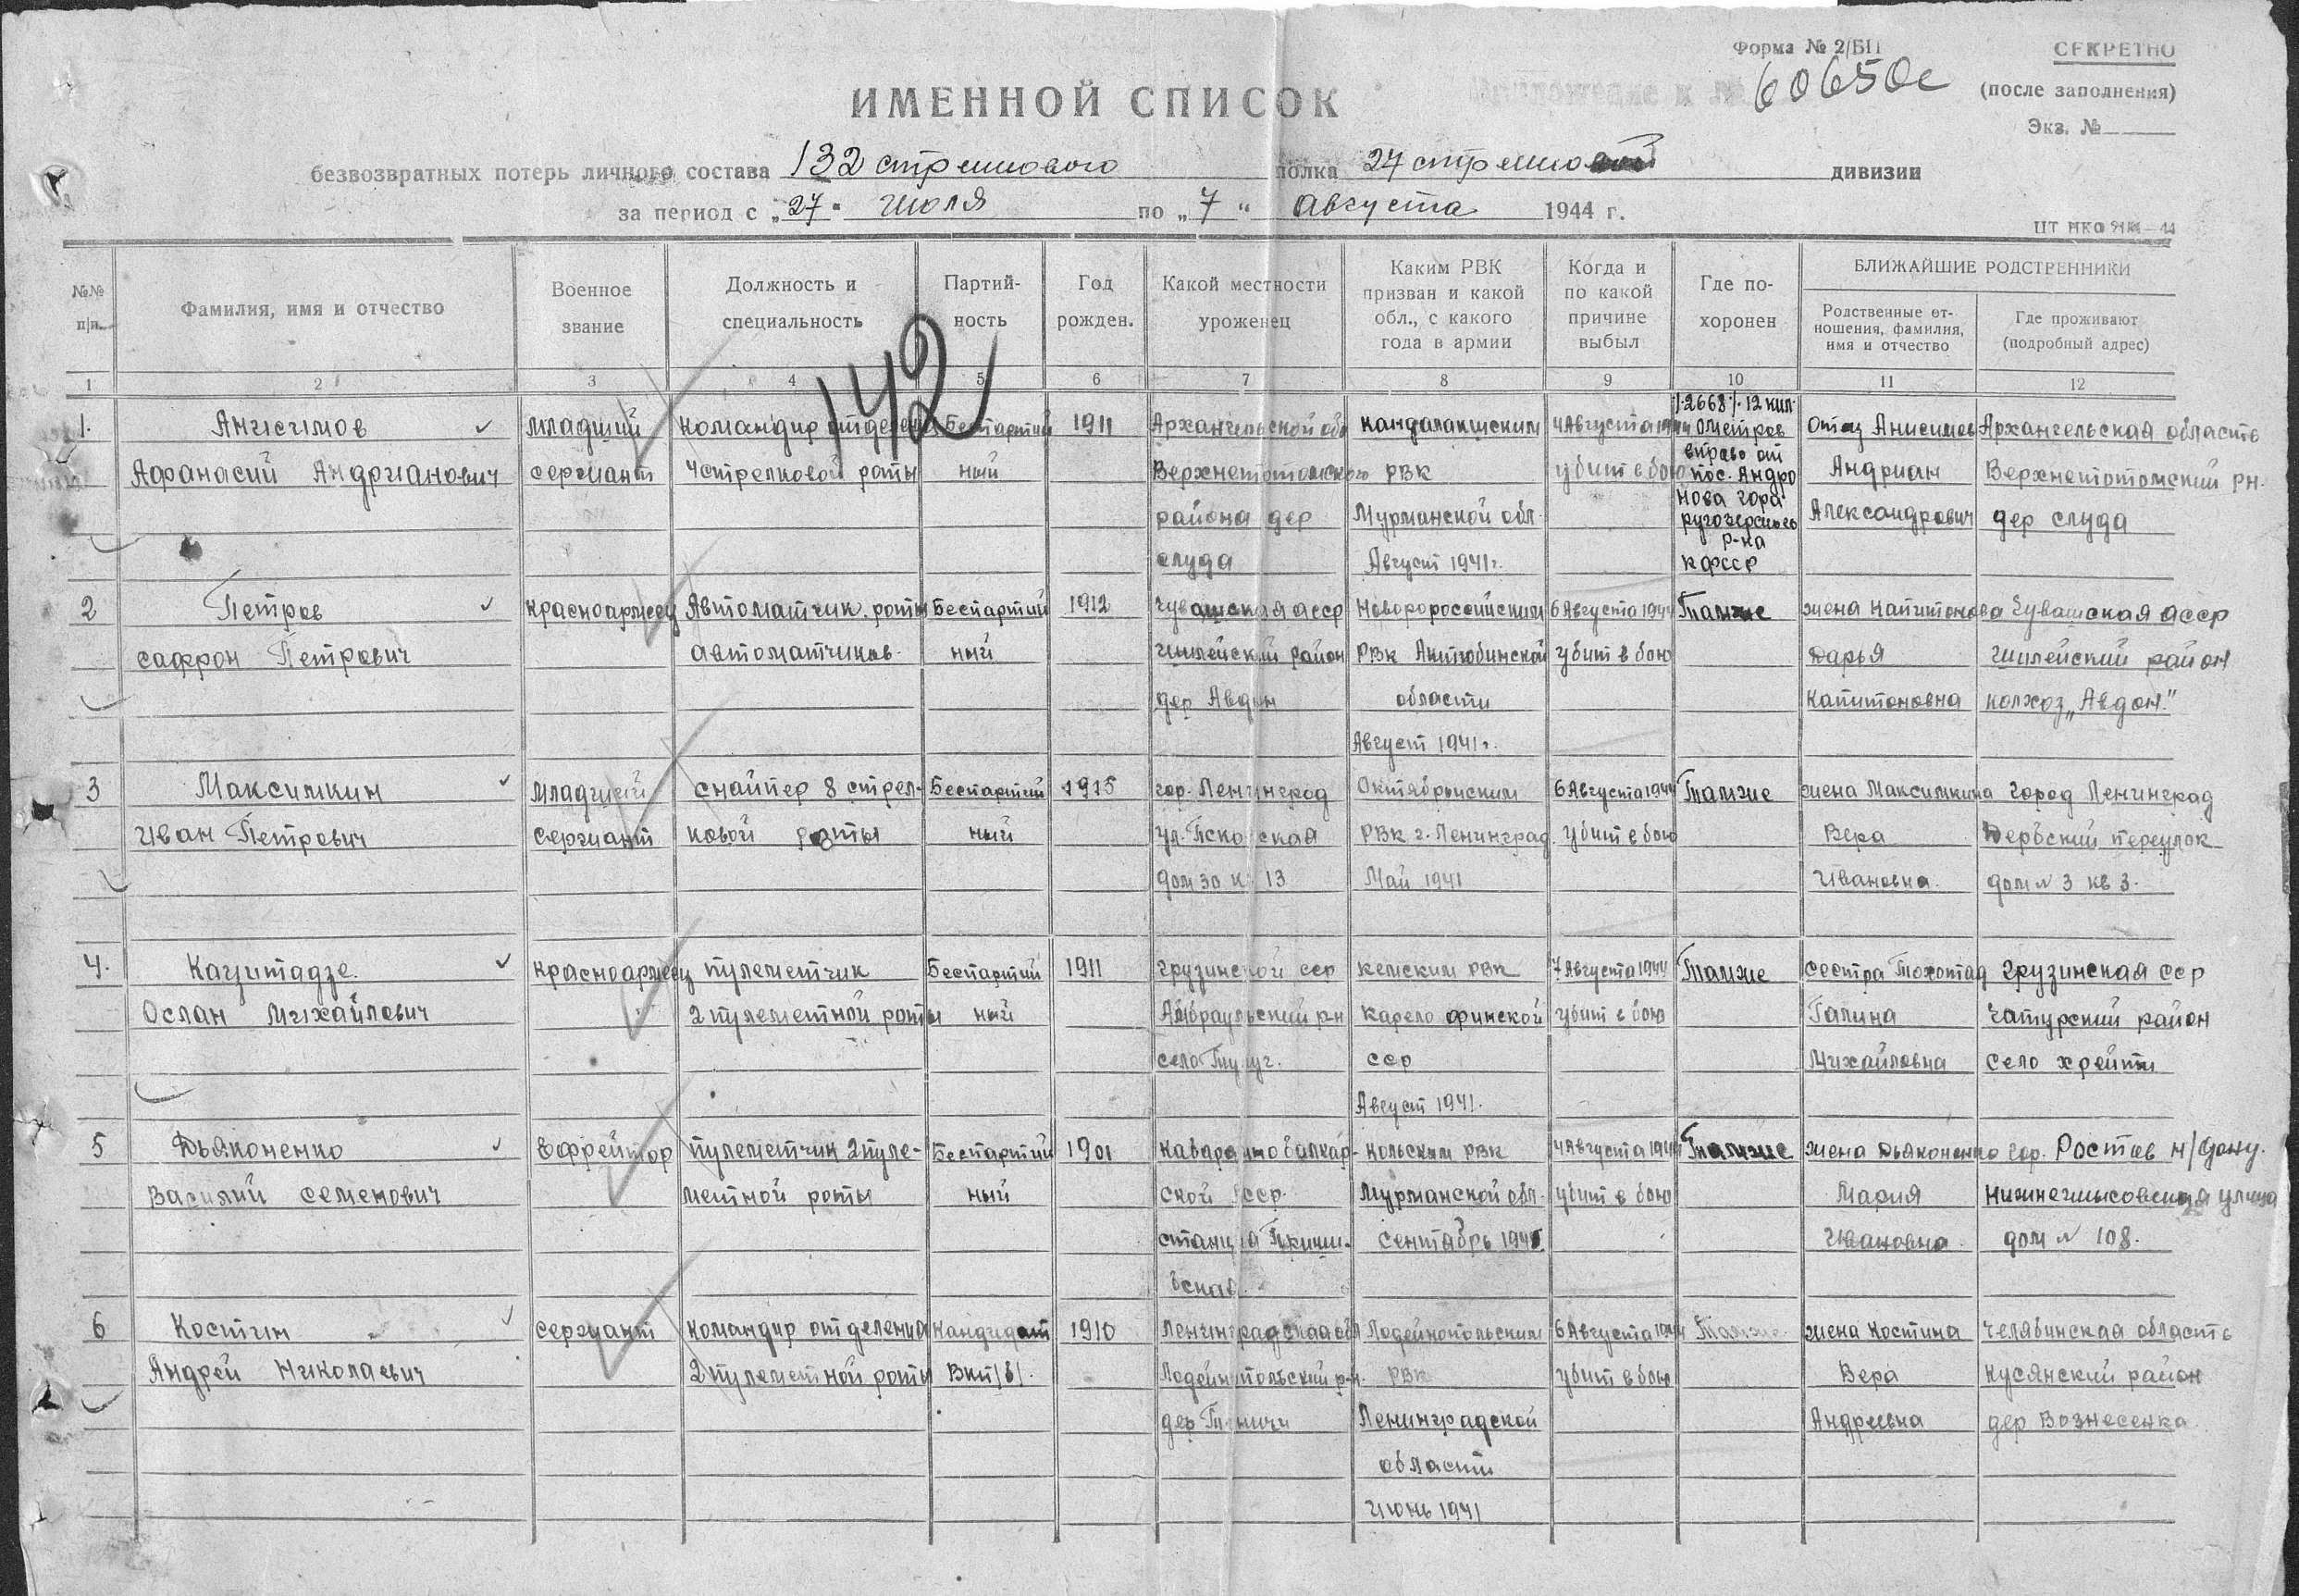 Форма № 2/БП
СЕКРЕТНО
60650с
(после заполнения)
Экз. №
ИМЕННОЙ СПИСОК
безвозвратных потерь личного состава 132 стрелкового полка 27 стрелковой дивизии
за период с „27“ июля по „7“ Августа 1944 г.
№№ п/п.
Фамилия, имя и отчество
Военное звание
Должность и специальность
Партий-ность
Год рожден.
Какой местности уроженец
Каким РВК призван и какой обл., с какого года в армии
Когда и по какой причине выбыл
Где по-хоронен
БЛИЖАЙШИЕ РОДСТВЕННИКИ
Родственные от-ношения, фамилия, имя и отчество
Где проживают (подробный адрес)
1 2 3 4 5 6 7 8 9 10 11 12
142
1. Анисимов младший командир отделен Беспартий 1911 Архангельской обл Кандалакшским 4 Августа 1944 12 кил. Отец Анисимов Архангельская область
Афанасий Андрианович сержант 4 стрелковой роты ный Верхнетотомского РВК убит в бою вправо от пос. Андро Андриан Верхнетотомский рн.
района дер Мурманской обл. нова гора Александрович дер слуда
слуда Август 1941г. р-на КФССР
2 Петров красноармеец Автоматчик роты Беспартий 1912 Чувашская АССР Новоророссийским 6 Августа 1944 Тамже жена Капитонова Чувашская АССР
сафрон Петрович автоматчиков. ный Шилейский район РВК Актюбинской убит в бою Дарья Шилейский район
дер Авдон области Капитоновна колхоз „Авдон."
Август 1941г.
3 Максимкин младший снайпер 8 стрел- Беспартий 1915 гор. Ленинград Октябрьским 6 Августа 1944 Тамже жена Максимкина город Ленинград
Иван Петрович сержант ковой роты ный ул. Псковская РВК г. Ленинград. убит в бою Вера Дербский переулок
дом 30 к 13 Май 1941 Ивановна. дом № 3 кв 3.
4. Кацитадзе. красноармеец пулеметчик Беспартий 1911 грузинской ССР Кемским РВК 7 Августа 1944 Тамже сестра грузинская ССР
Ослан Михайлович 2 пулеметной роты ный Карело финской убит в бою Галина Чатурский район
село ССР Михайловна село хрейти
Август 1941.
5 Дьяконенко Ефрейтор пулеметчик 2 пуле- Беспартий 1901 Кабардинобалкар- Кольским РВК 4 Августа 1944 Тамже жена Дьяконенко гор. Ростов н/Дону.
Василий семенович метной роты ный ской ССР. Мурманской обл. убит в бою Мария улица
станция Сентябрь Ивановна дом № 108.
ская.
6 Костин сержант командир отделения Кандидат 1910 Ленинградская обл Лодейнопольским 6 Августа 1944 Тамже жена Костина Челябинская область
Андрей Николаевич 2 пулеметной роты ВКП/б/. Лодейнопольский р-н. РВК убит в бою Вера Кусянский район
дер Ленинградской Андреевна дер Вознесенка.
области
Июнь 1941